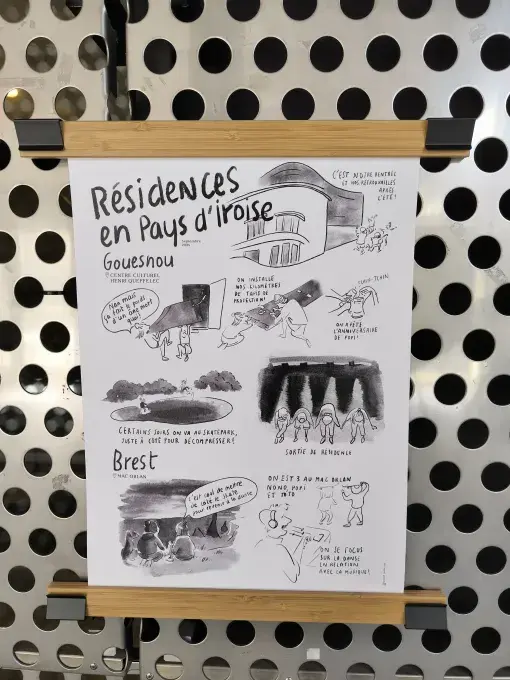 Résidences
en Pays d'iroise
C'EST NOTRE RENTRÉE
ET NOS RETROUVAILLES
APRÈS
L'ÉTÉ!
Gouesnou
CENTRE CULTUREL
HENRI QUEFFELEC
Non mais
ça fait le poids
d'un âne mort
quoi!
ON INSTALLE
NOS KILOMÈTRES
DE TAPIS DE
PROTECTION!
TCHIN-TCHIN
ON A FÊTÉ
L'ANNIVERSAIRE
DE POPI!
CERTAINS SOIRS ON VA AU SKATEPARK,
JUSTE À CÔTÉ POUR DÉCOMPRESSER!
SORTIE DE RÉSIDENCE
Brest
MAC ORLAN
C'est cool de mettre
de côté le skate
pour revenir à la danse
ON EST 3 AU MAC ORLAN
NONO, POPI
ET
ON SE FOCUS
SUR LA DANSE
EN RELATION
AVEC LA MUSIQUE!